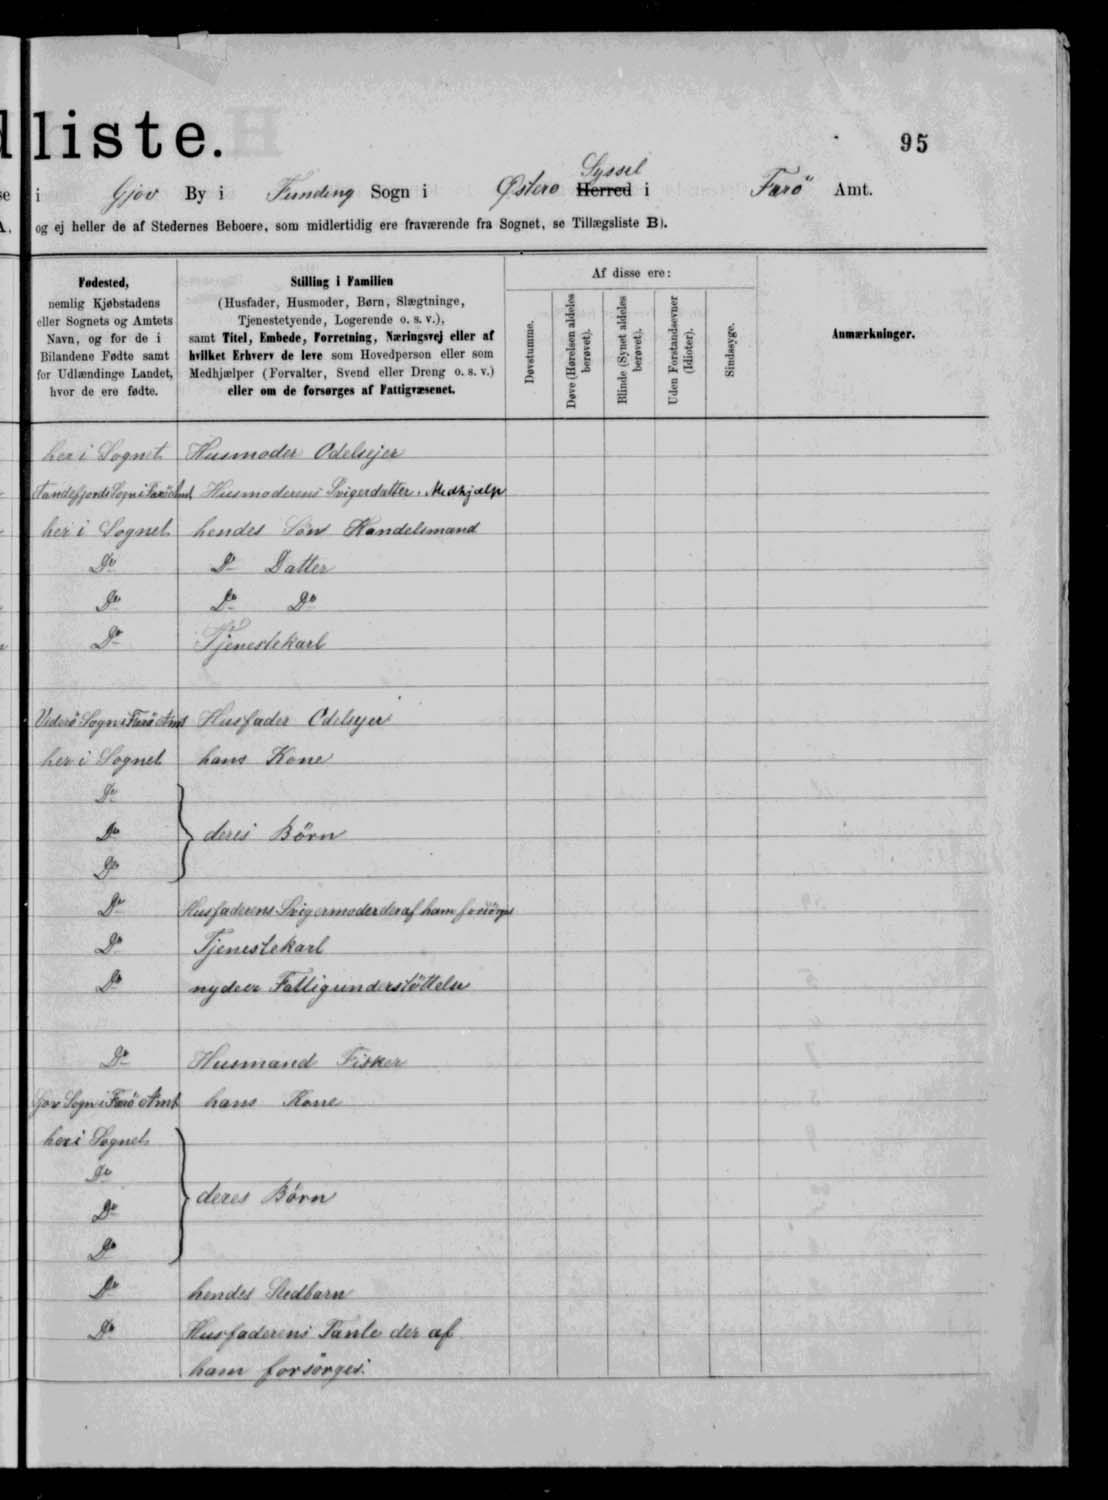 dliste.
95
se i Gjov By i Funding Sogn i Østerø Herred Syssel i Færø Amt.
A. og ej heller de af Stedernes Beboere, som midlertidig ere fraværende fra Sognet, se Tillægsliste B).
Fødested,
nemlig Kjøbstadens
eller Sognets og Amtets
Navn, og for de i
Bilandene Fødte samt
for Udlændinge Landet,
hvor de ere fødte.
Stilling i Familien
(Husfader, Husmoder, Børn, Slægtninge,
Tjenestetyende, Logerende o. s. v.),
samt Titel, Embede, Forretning, Næringsvej eller af
hvilket Erhverv de leve som Hovedperson eller som
Medhjælper (Forvalter, Svend eller Dreng o. s. v.)
eller om de forsørges af Fattigvæsenet.
Af disse ere:
Døvstumme.
Døve (Hørelsen aldeles
berøvet).
Blinde (Synet aldeles
berøvet).
Uden Forstandsevner
(Idioter).
Sindssyge.
Anmærkninger.
her i Sognet Husmoder Odelsejer
Sogn i Færø Amt Husmoderens Svigerdatter. Medhjælp
her i Sognet hendes Søn Handelsmand
Do Do Datter
Do Do Do
Do Tjenestekarl
Viderø Sogn i Færø Amt Husfader Odelsejer
her i Sognet hans Kone
Do
Do deres Børn
Do
Do Husfaderens Svigermoder der af ham forsörges
Do Tjenestekarl
Do nyder Fattigunderstöttelse
Do Husmand Fisker
Sogn i Færø Amt hans Kone
her i Sognet
Do
Do deres Børn
Do
Do hendes Stedbarn
Do Husfaderens Tante der af
ham forsörges.